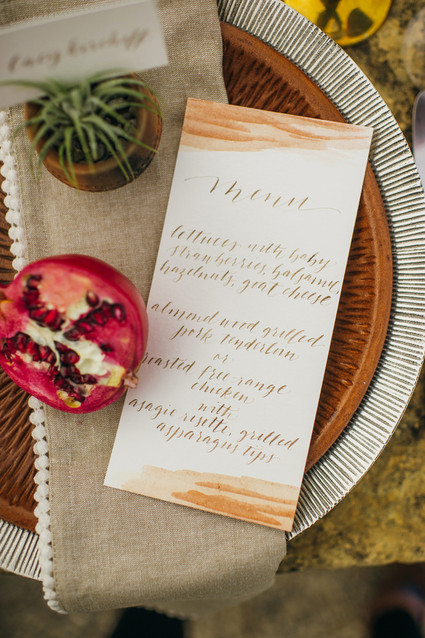 menu
lettuces with baby
strawberries, balsamic
hazelnuts, goat cheese
almond wood grilled
pork tenderloin
or
roasted free range
chicken
with
asagio risotto, grilled
asparagus tips